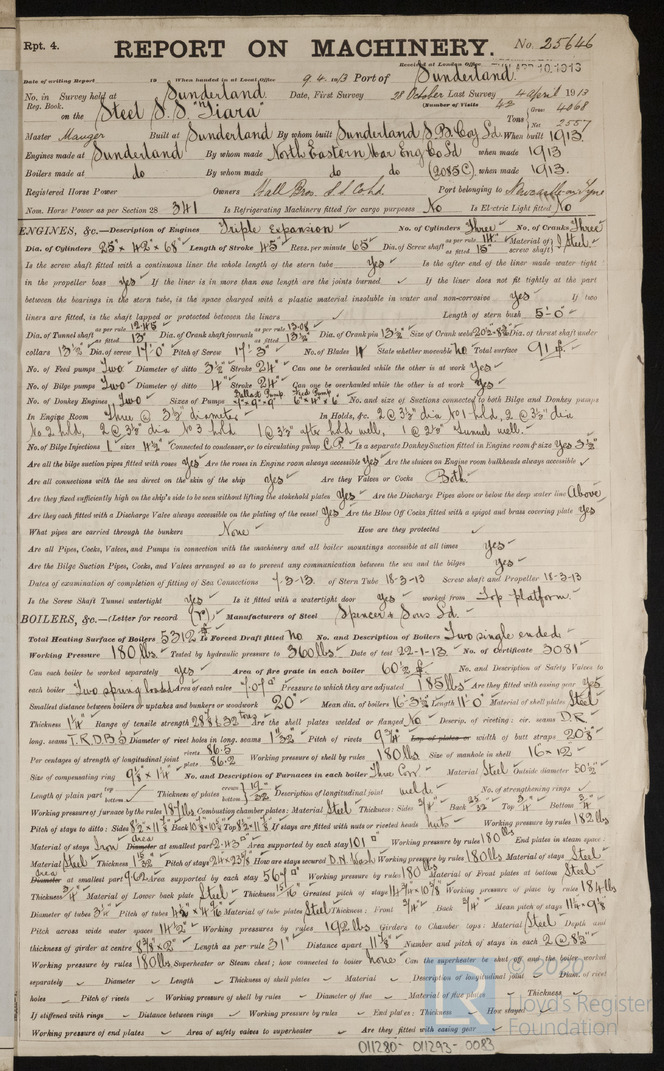 Rpt. 4. REPORT ON MACHINERY. No. 25646
Received at London Office APR. 10. 1913
Date of writing Report 19 When handed in at Local Office 9. 4. 1913 Port of Sunderland.
No. in Survey held at Sunderland. Date, First Survey 28 October Last Survey 4 April 1913
Reg. Book. (Number of Visits 42
on the Steel S.S. "Tiara" Tons Gross 4068 Net 2557
Master Mauger Built at Sunderland By whom built Sunderland S.B. Coy. Ld. When built 1913.
Engines made at Sunderland By whom made North Eastern Mar. Eng. Co. Ld when made 1913
Boilers made at do By whom made do do (2085C.) when made 1913.
Registered Horse Power Owners Hall Bros. S.S. Co. Ld. Port belonging to Newcastle on Tyne
Nom. Horse Power as per Section 28 341 Is Refrigerating Machinery fitted for cargo purposes No Is Electric Light fitted No
ENGINES, &c.—Description of Engines Triple Expansion No. of Cylinders Three No. of Cranks Three
Dia. of Cylinders 25" × 42" × 68" Length of Stroke 45" Revs. per minute 65 Dia. of Screw shaft as per rule 14." as fitted 15" Material of screw shaft Steel
Is the screw shaft fitted with a continuous liner the whole length of the stern tube Yes Is the after end of the liner made water tight
in the propeller boss yes If the liner is in more than one length are the joints burned ✓ If the liner does not fit tightly at the part
between the bearings in the stern tube, is the space charged with a plastic material insoluble in water and non-corrosive yes If two
liners are fitted, is the shaft lapped or protected between the liners ✓ Length of stern bush 5'-0"
Dia. of Tunnel shaft as per rule 12.45 as fitted 13" Dia. of Crank shaft journals as per rule 13.08" as fitted 13½" Dia. of Crank pin 13½" Size of Crank webs Dia. of thrust shaft under
collars 13½" Dia. of screw 17'.0" Pitch of Screw 17'.3" No. of Blades 4 State whether moveable No Total surface 91
No. of Feed pumps Two Diameter of ditto 3½" Stroke 24" Can one be overhauled while the other is at work Yes
No. of Bilge pumps Two Diameter of ditto 4" Stroke 24" Can one be overhauled while the other is at work Yes
No. of Donkey Engines Two Sizes of Pumps Ballast Pump Feed Pump 6" × 4" × 6" No. and size of Suctions connected to both Bilge and Donkey pumps
In Engine Room Three @ 3½" diameter In Holds, &c. 2 @ 3½" dia No 1 hold, 2 @ 3½" dia
No 2 hold, 2 @ 3½" dia No 3 hold. 1 @ 3½" after hold well, 1 @ 2½" tunnel well.
No. of Bilge Injections 1 sizes 4½" Connected to condenser, or to circulating pump C.P. Is a separate Donkey Suction fitted in Engine room & size Yes 3½"
Are all the bilge suction pipes fitted with roses Yes Are the roses in Engine room always accessible Yes Are the sluices on Engine room bulkheads always accessible ✓
Are all connections with the sea direct on the skin of the ship yes Are they Valves or Cocks Both.
Are they fixed sufficiently high on the ship's side to be seen without lifting the stokehold plates Yes Are the Discharge Pipes above or below the deep water line Above
Are they each fitted with a Discharge Valve always accessible on the plating of the vessel Yes Are the Blow Off Cocks fitted with a spigot and brass covering plate Yes
What pipes are carried through the bunkers None How are they protected ✓
Are all Pipes, Cocks, Valves, and Pumps in connection with the machinery and all boiler mountings accessible at all times yes
Are the Bilge Suction Pipes, Cocks, and Valves arranged so as to prevent any communication between the sea and the bilges Yes
Dates of examination of completion of fitting of Sea Connections 7-3-13 of Stern Tube 18-3-13 Screw shaft and Propeller 18-3-13
Is the Screw Shaft Tunnel watertight Yes Is it fitted with a watertight door Yes worked from Top platform.
BOILERS, &c.—(Letter for record (r)) Manufacturers of Steel Spencer & Sons Ld.
Total Heating Surface of Boilers 5312 Is Forced Draft fitted No No. and Description of Boilers Two single ended
Working Pressure 180 lbs. Tested by hydraulic pressure to 360 lbs Date of test 22-1-13. No. of Certificate 3081
Can each boiler be worked separately yes Area of fire grate in each boiler 60½ No. and Description of Safety Valves to
each boiler Two spring loaded Area of each valve 7.07" Pressure to which they are adjusted 185 lbs Are they fitted with easing gear Yes
Smallest distance between boilers or uptakes and bunkers or woodwork 20" Mean dia. of boilers 16-3½" Length 11'-0" Material of shell plates Steel
Thickness 1¼" Range of tensile strength Are the shell plates welded or flanged No Descrip. of riveting: cir. seams D.R.
long. seams T.R.D.B.S Diameter of rivet holes in long. seams 1 5/32" Pitch of rivets Lap of plates or width of butt straps
Per centages of strength of longitudinal joint rivets 86.5 plate 86.2 Working pressure of shell by rules 180 lbs Size of manhole in shell 16 × 12
Size of compensating ring No. and Description of Furnaces in each boiler Three Corr. Material Steel Outside diameter 50½"
Length of plain part top bottom ✓ Thickness of plates crown bottom 17/32 Description of longitudinal joint weld No. of strengthening rings ✓
Working pressure of furnace by the rules 187 lbs Combustion chamber plates: Material Steel Thickness: Sides ¾" Back 23/32 Top ¾ Bottom ¾"
Pitch of stays to ditto: Sides Back Top If stays are fitted with nuts or riveted heads nuts Working pressure by rules 182 lbs
Material of stays Iron Area Diameter at smallest part 2.43" Area supported by each stay 101" Working pressure by rules 180 lbs End plates in steam space:
Material Steel Thickness Pitch of stays How are stays secured D.N. Wash Working pressure by rules 180 lbs Material of stays Steel
Area Diameter at smallest part 9.62 Area supported by each stay 567" Working pressure by rules 180 lbs Material of Front plates at bottom Steel
Thickness Material of Lower back plate Steel Thickness Greatest pitch of stays Working pressure of plate by rules 184 lbs
Diameter of tubes 3¼" Pitch of tubes Material of tube plates Steel Thickness: Front ¾" Back ¾" Mean pitch of stays
Pitch across wide water spaces 14½" Working pressures by rules 192 lbs Girders to Chamber tops: Material Steel Depth and
thickness of girder at centre Length as per rule 31" Distance apart Number and pitch of stays in each 2 @ 8½"
Working pressure by rules 180 lbs Superheater or Steam chest; how connected to boiler None Can the superheater be shut off and the boiler worked
separately ✓ Diameter ✓ Length ✓ Thickness of shell plates ✓ Material ✓ Description of longitudinal joint ✓ Diam. of rivet
holes ✓ Pitch of rivets ✓ Working pressure of shell by rules ✓ Diameter of flue ✓ Material of flue plates ✓ Thickness ✓
If stiffened with rings ✓ Distance between rings ✓ Working pressure by rules ✓ End plates: Thickness ✓ How stayed ✓
Working pressure of end plates ✓ Area of safety valves to superheater ✓ Are they fitted with easing gear ✓
© 2020
Lloyd's Register
Foundation
011280- 011293- 0083